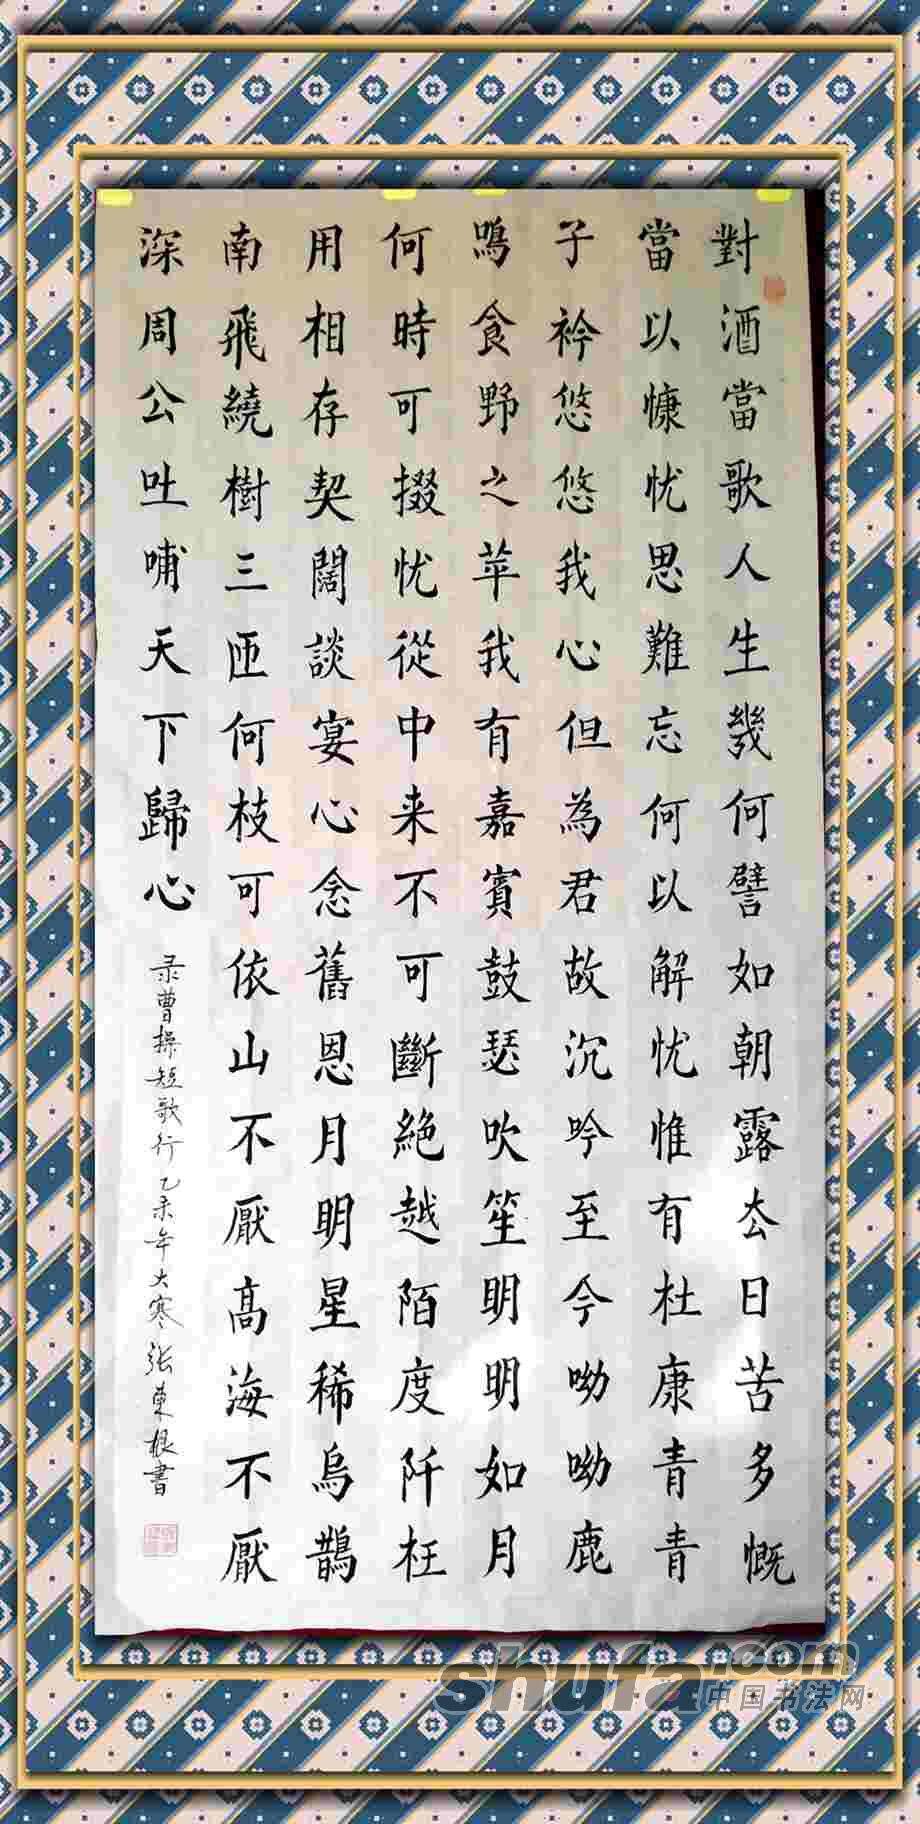 對酒當歌人生幾何譬如朝露去日苦多慨
當以慷忧思難忘何以解忧惟有杜康青青
子衿悠悠我心但為君故沉吟至今呦呦鹿
鳴食野之苹我有嘉賓鼓瑟吹笙明明如月
何時可掇忧從中来不可斷絶越陌度阡枉
用相存契闊談宴心念舊恩月明星稀烏鵲
南飛繞樹三匝何枝可依山不厭高海不厭
深周公吐哺天下歸心
录曹操短歌行乙未年大寒張東根書
shufa.com
中国书法网